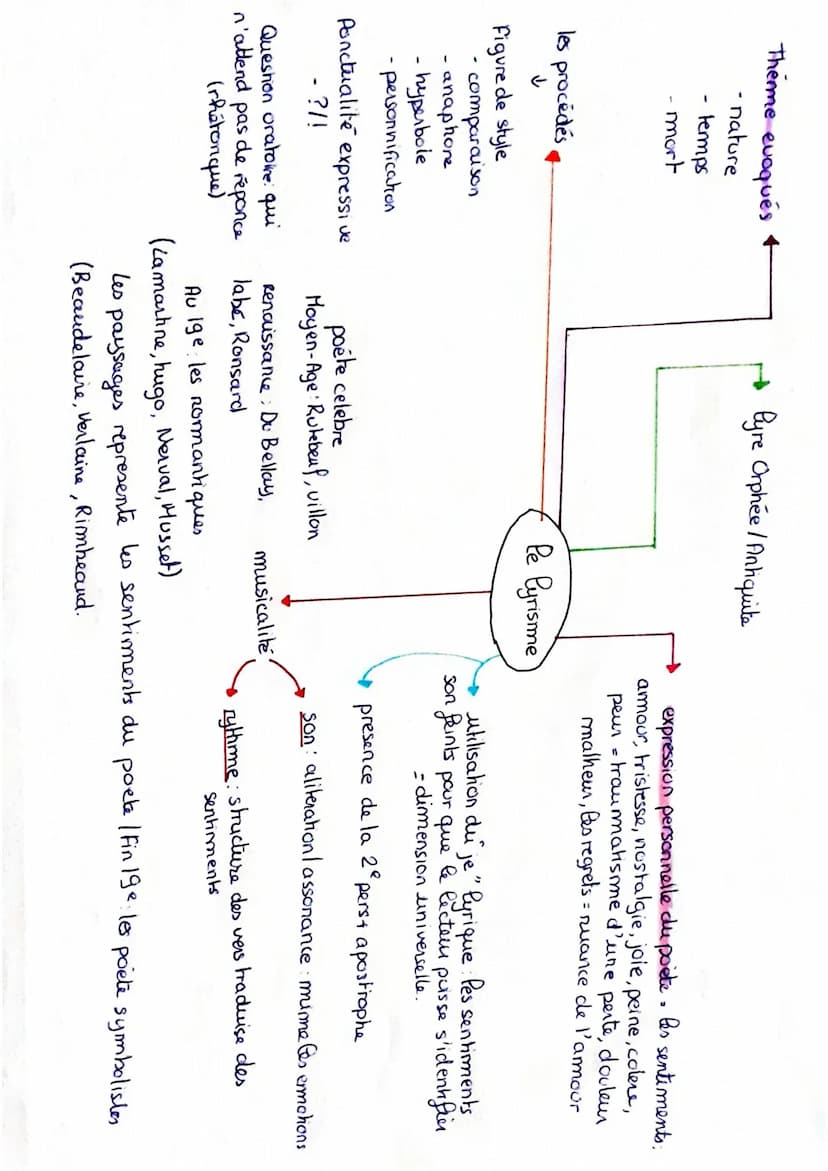 Thème evoqués
- nature
- temps
- mort
Lyre Orphée / Antiquité
expression personnelle du poète = les sentiments :
amour, tristesse, nostalgie, joie, peine, colere,
peur = traumatisme d'une perte, douleur
malheur, les regrets = nuance de l'amour
les procédés
↓
Figure de style
- comparaison
- anaphore
- hyperbole
- personnification
Ponctualité expressive
- ?/!
Question oratoire : qui
n'attend pas de réponce
(rhétorique)
le lyrisme
utilisation du "je" lyrique : les sentiments
son peints pour que le lecteur puisse s'identifier
= dimension universelle.
presence de la 2e pers + apostrophe
musicalité
son : aliteration / assonance : mime les emotions
rythme : structure des vers traduise des
sentiments
poète celebre
Moyen-Age : Rutebeuf, villon
renaissance : Du Bellay,
labé, Ronsard
Au 19e : les romantiques
(Lamartine, hugo, Nerval, Musset)
les paysages represente les sentiments du poete / Fin 19e : les poète symbolistes
(Beaudelaire, Verlaine, Rimbeaud.